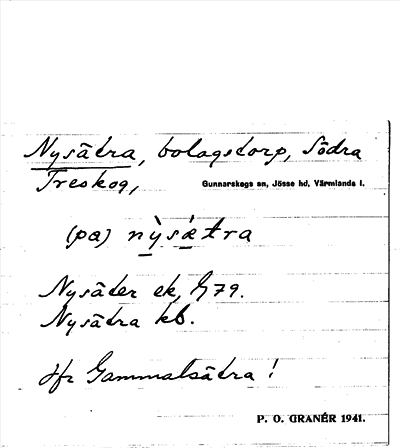 Nysätra, bolagstorp, Södra
Treskog, Gunnarskogs sn, Jösse hd, Värmlands l.
(pa) nỳsætra
Nysäter ek, G79.
Nysätra kb.
Jfr Gammalsätra!
P. O. GRANÉR 1941.